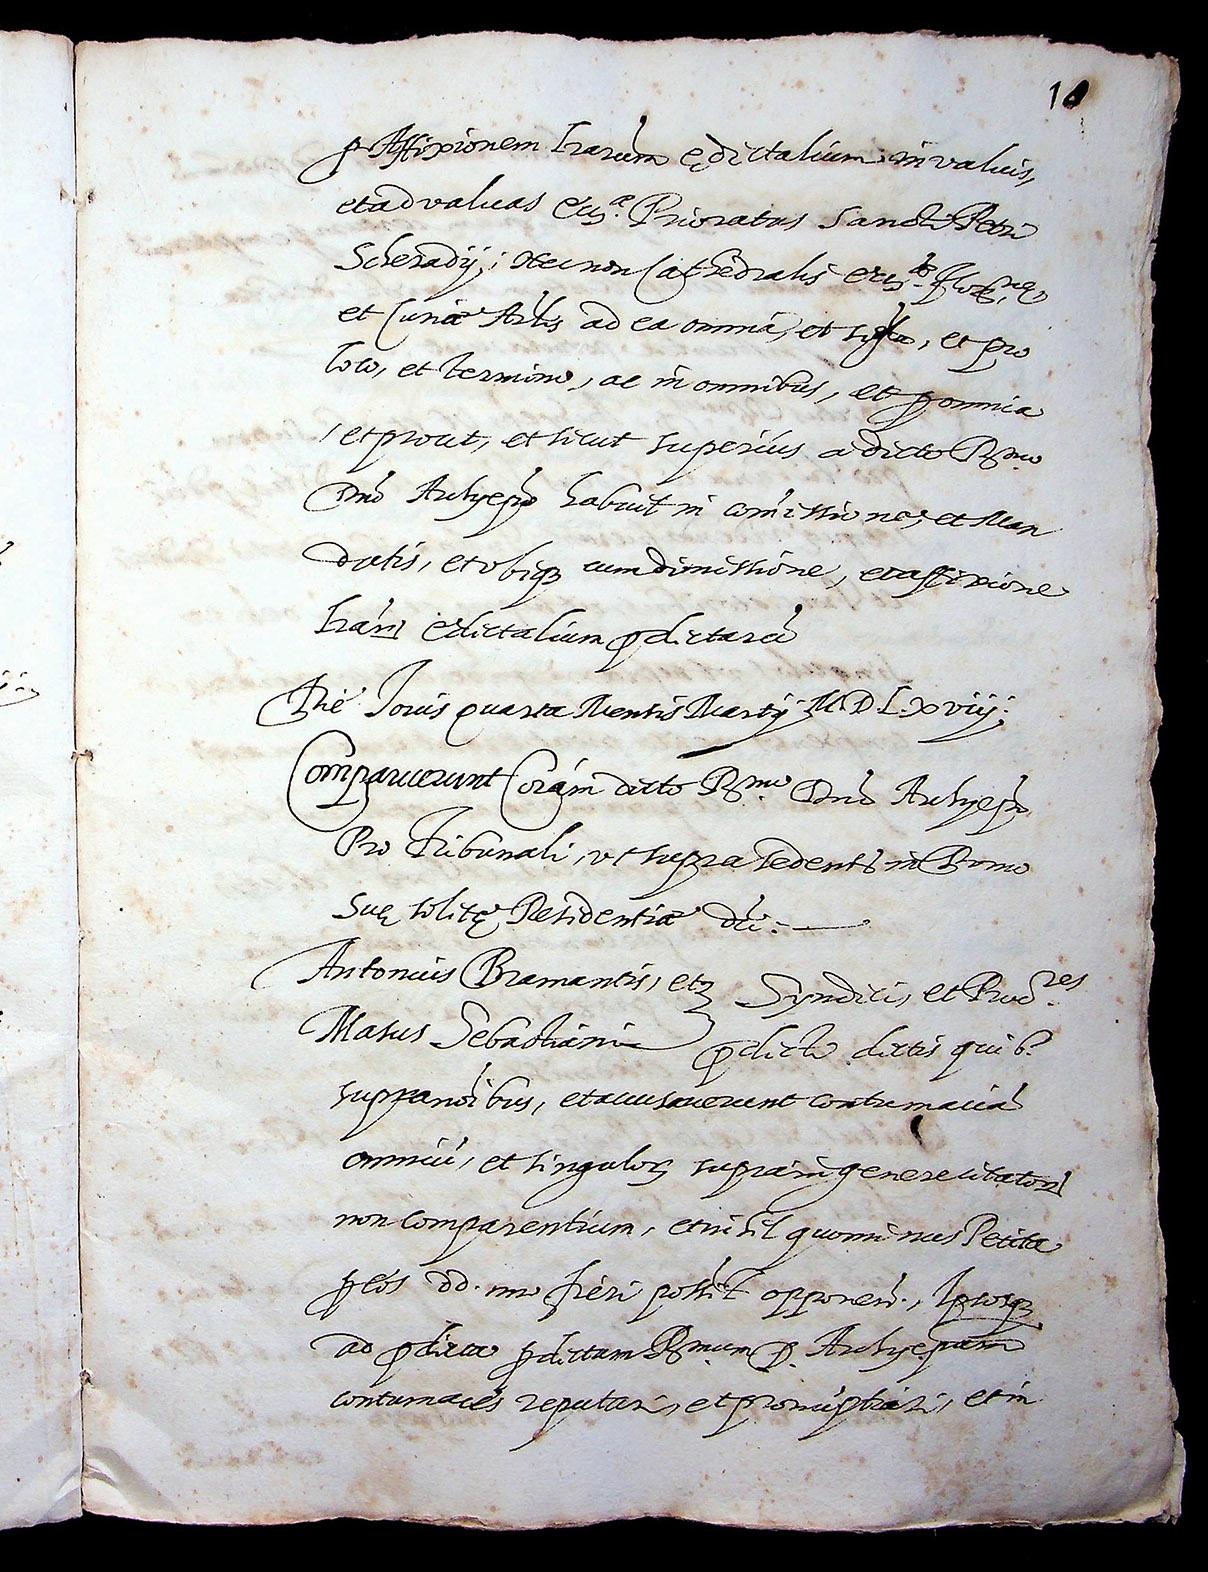 10
p Affixionem Lrarum edictalium in valvis,
et ad valvas eccl.æ Prioratus Sancti Petri
Scheradij; Necnon Cathedralis eccl.
et Curiæ Archis ad ea omnia, et sigla, et pro
loco, et termino, ac in omnibus, et p omnia
et prout, et sicut superius a dicto R.mo
Dno Archyepo habuit in comissione, et Man
datis, et obiq3 cum dimissione, et affixione
Lrarũ edictalium pdictarũ
Die Jovis quarta Mensis Martij M.D.L.xviij:
Comparuerunt Coram dicto R.mo Dno Archyepo
Pro Tribunali, ut supra sedenti in Domo
Suę solitę Residentiæ dũ:
Antonius Bramantis, et
Masus Sebastiani
Syndici, et Procres
pdicti dictis quib.
supranoibus, et accusaverunt contumaciã
omniũ, et singulor supra in genere citatorũ
non Comparentium, et nihil quominus Petita
p eos dd. noe fieri possit opponen., Ipsosq3
ad pdicta pdictum R.mum D. Archyepum
contumaces reputari, et pronũptiari, et in